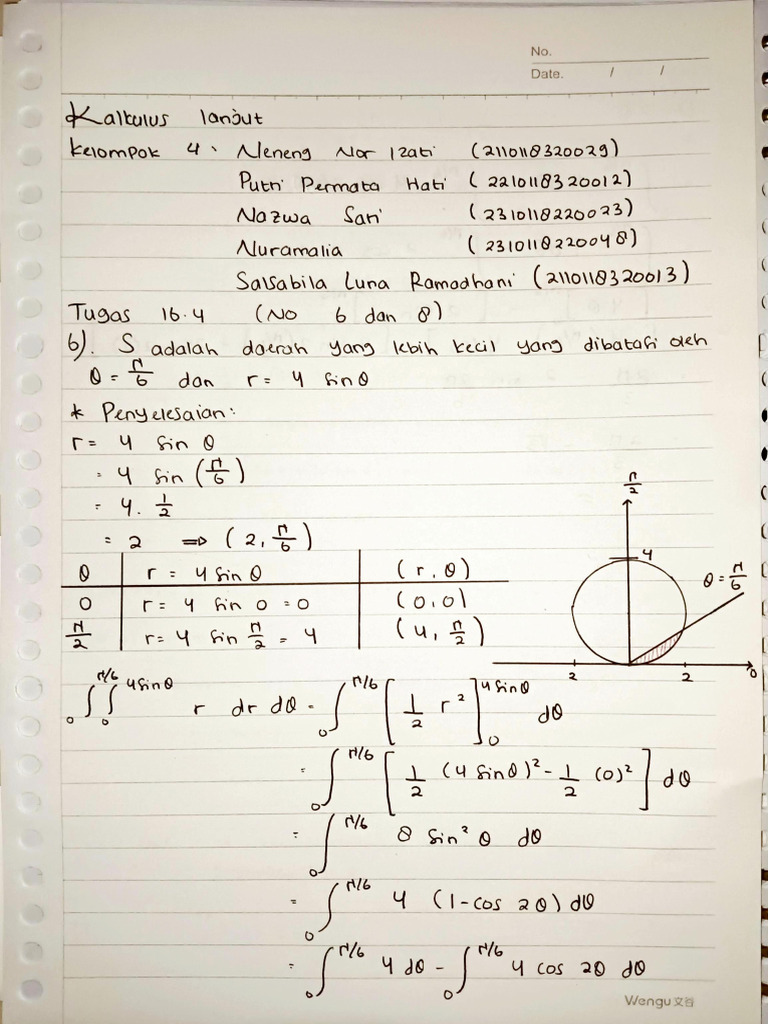 No.
Date. / /
Kalkulus lanjut
Kelompok 4 : Neneng Nor Izati (2110118320029)
Putri Permata Hati (2210118320012)
Nazwa Sari (2310118220023)
Nuramalia (2310118220048)
Salsabila Luna Ramadhani (2110118320013)
Tugas 16.4 (No 6 dan 8)
6). S adalah daerah yang lebih kecil yang dibatasi oleh
θ = π/6 dan r = 4 sin θ
* Penyelesaian:
r = 4 sin θ
= 4 sin (π/6)
= 4 . 1/2
= 2 ⇒ (2, π/6)
θ | r = 4 sin θ | (r, θ)
0 | r = 4 sin 0 = 0 | (0,0)
π/2 | r = 4 sin π/2 = 4 | (4, π/2)
π/2
4
θ = π/6
2 2 0
∫₀^π/6 ∫₀^4 sin θ r dr dθ = ∫₀^π/6 [1/2 r²]₀^4 sin θ dθ
= ∫₀^π/6 [1/2 (4 sin θ)² - 1/2 (0)²] dθ
= ∫₀^π/6 8 sin² θ dθ
= ∫₀^π/6 4 (1 - cos 2θ) dθ
= ∫₀^π/6 4 dθ - ∫₀^π/6 4 cos 2θ dθ
Wengu 文谷